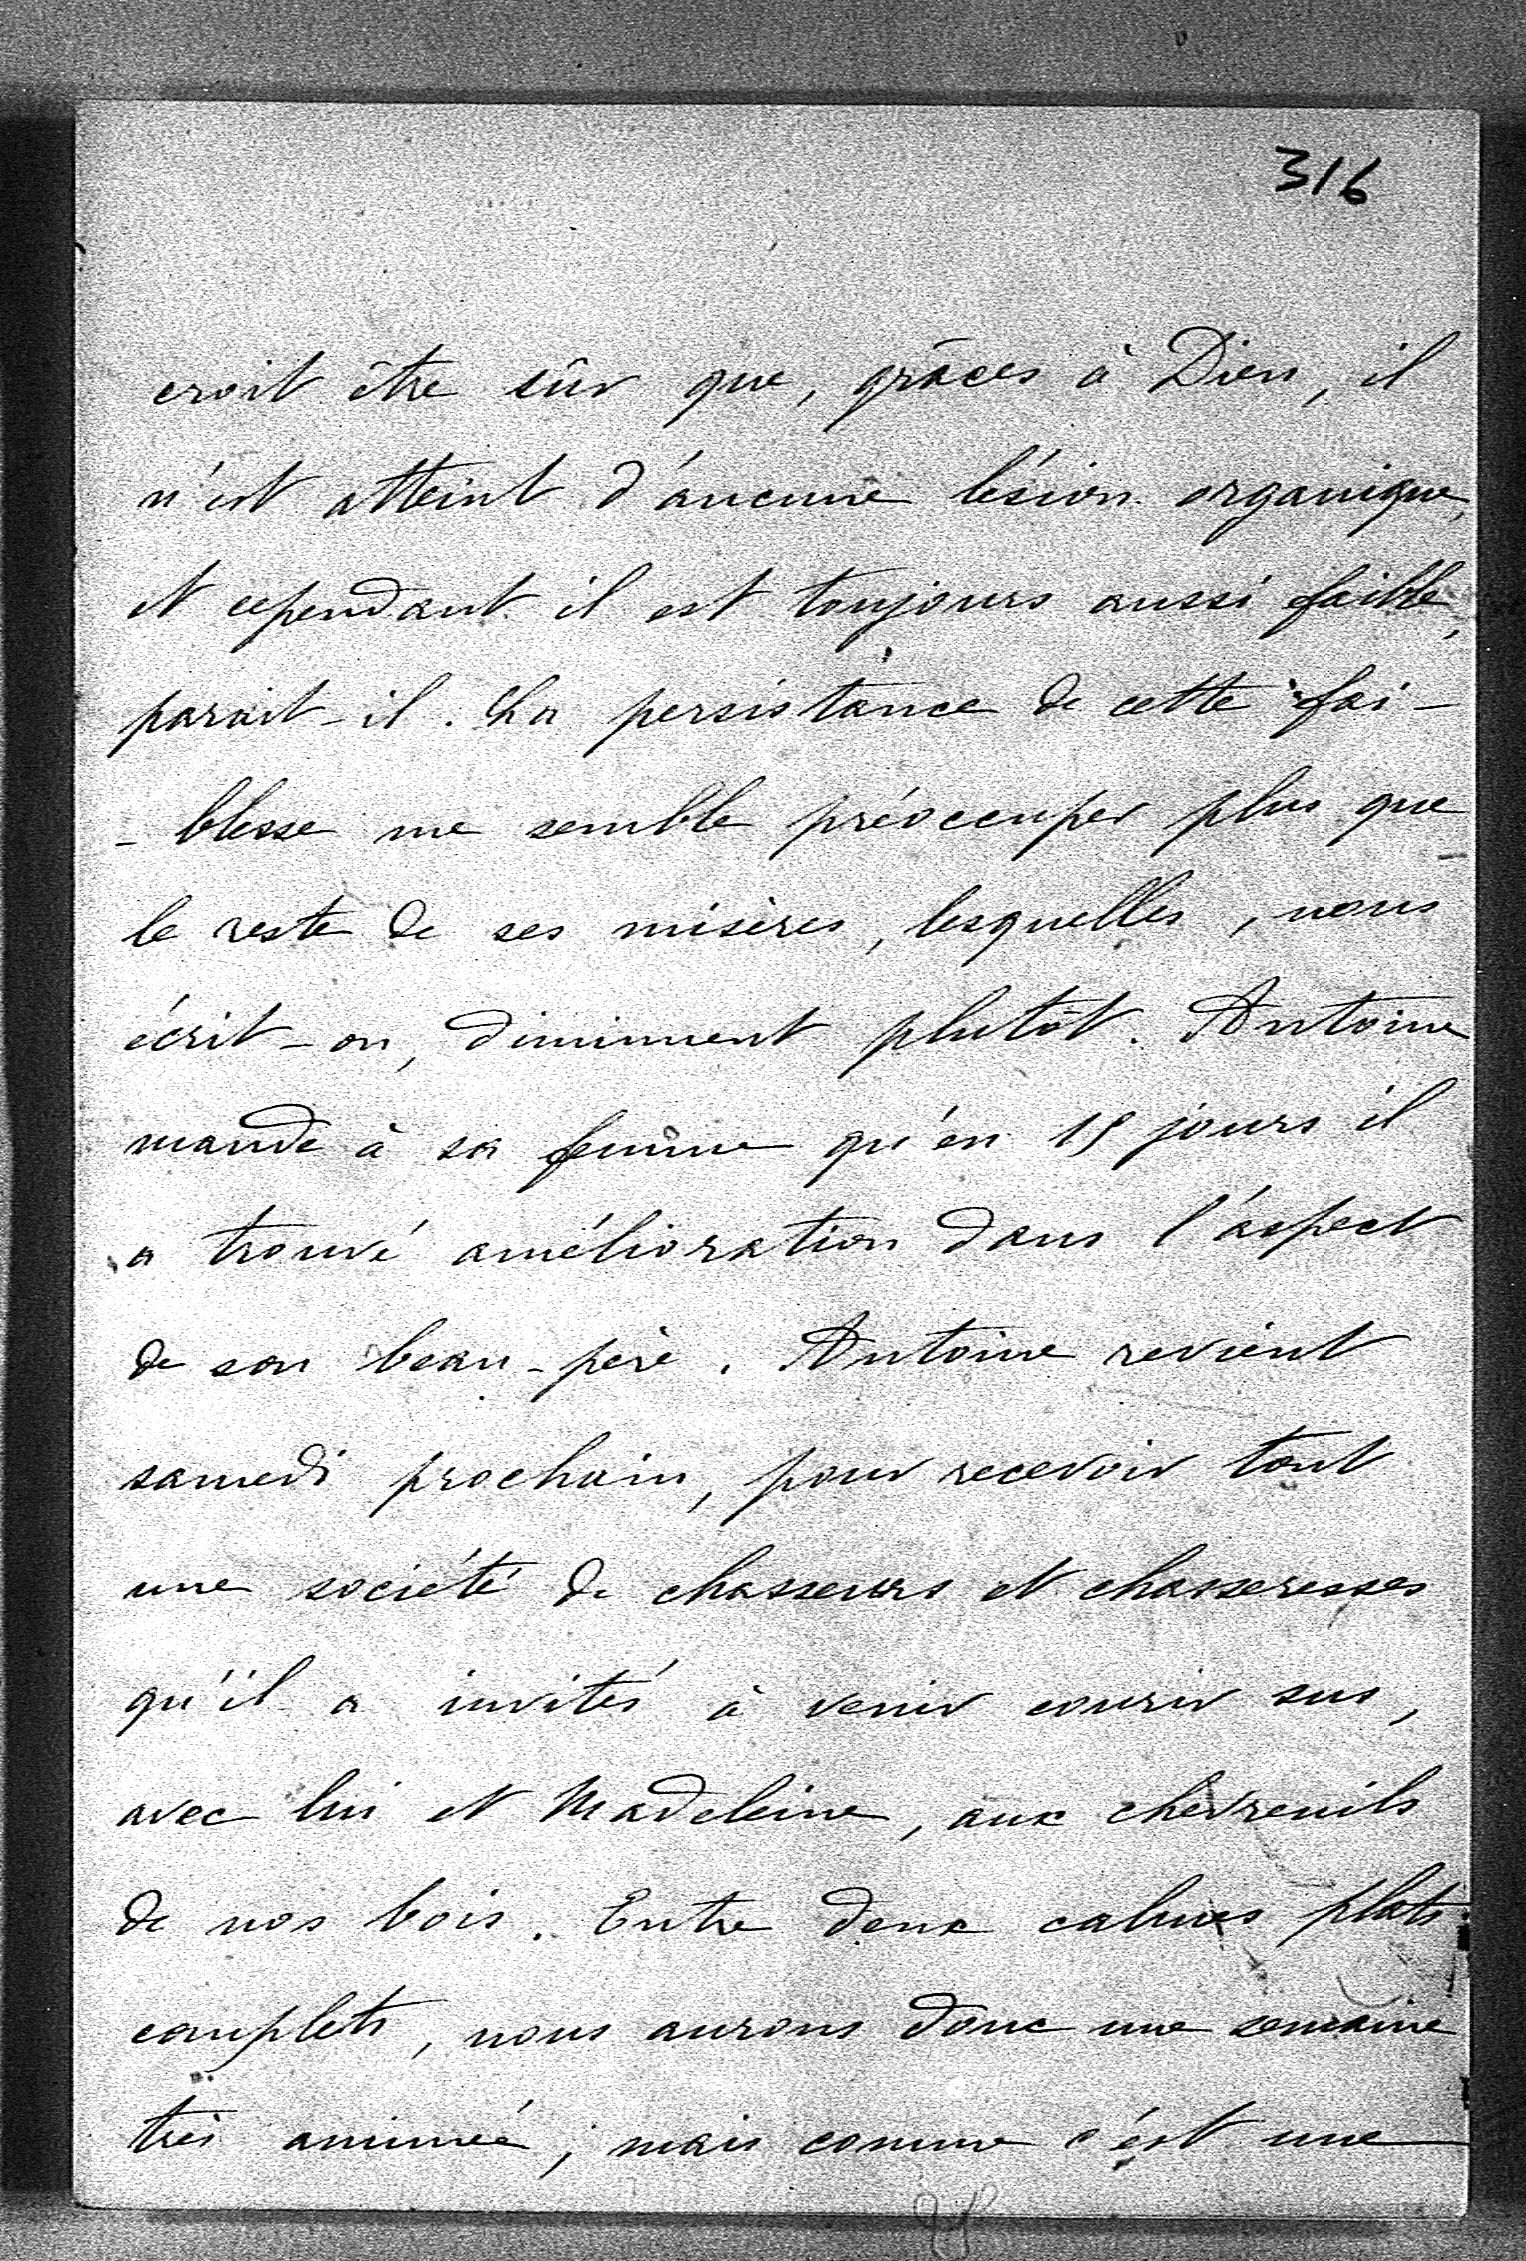 316
croit être sûr que, grâces à Dieu, il
n'est atteint d'aucune lésion organique,
et cependant il est toujours aussi faible,
parait-il. La persistance de cette fai-
-blesse me semble préoccuper plus que
le reste de ses misères, lesquelles, nous
écrit-on, diminuent plutôt. Antoine
mande à sa femme qu'en 15 jours il
a trouvé amélioration dans l'aspect
de son beau-père. Antoine revient
samedi prochain, pour recevoir tout
une société de chasseurs et chasseresses
qu'il a invités à venir courir sus,
avec lui et Madeleine, aux chevreuils
de nos bois. Entre deux calmes plats
complets, nous aurons donc une semaine
très animée; mais comme c'est une